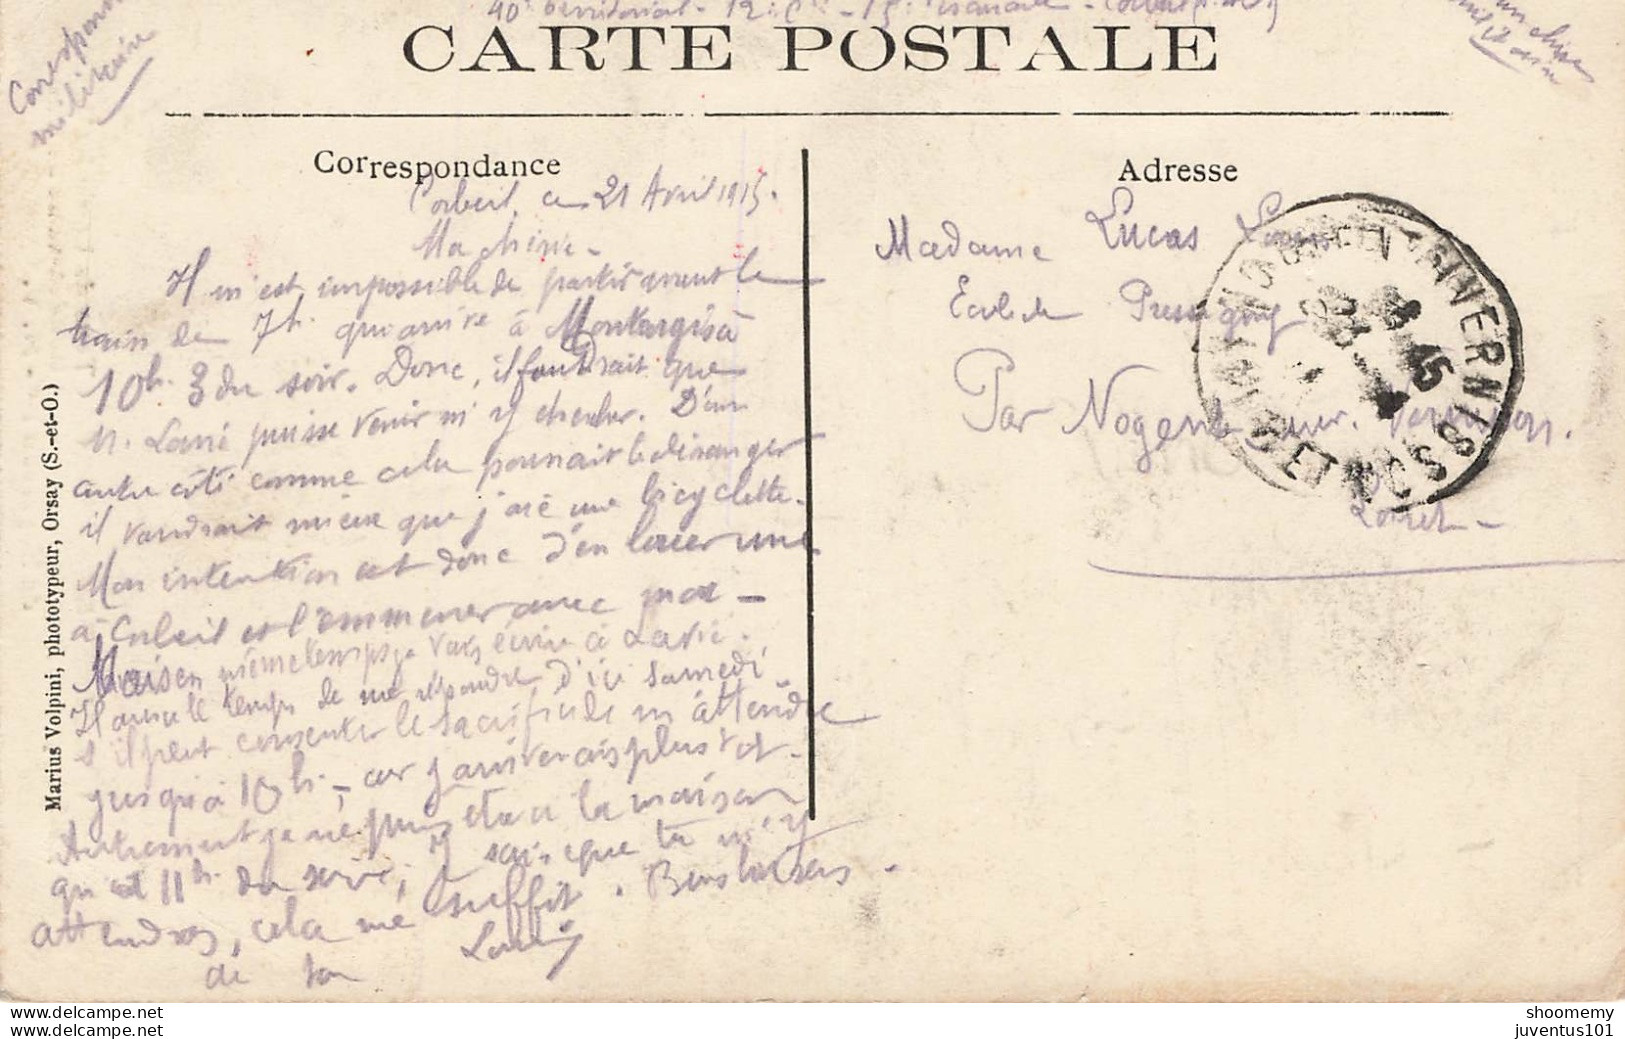 40e Territorial - 12e Cie - 15e
Correspondance
militaire
CARTE POSTALE
Correspondance
Corbeil, ce 21 Avril 1915.
Ma chérie -
Il m'est impossible de partir avant le
train de 7h. qui arrive à Montargis à
10h. 3 du soir. Donc, il faudrait que
M. Larié puisse venir m'y chercher. D'un
autre côté comme cela pourrait le déranger
il vaudrait mieux que j'aie une bicyclette.
Mon intention est donc d'en louer une
à Corbeil et l'emmener avec moi -
même temps je vais écrire à Larié.
Il aura le temps de me répondre d'ici samedi
s'il peut consentir le sacrifice de m'attendre
jusqu'à 10h. - car j'arriverais plus tôt.
Autrement je ne puis être à la maison
qu'à 11h. du soir; Je sais que tu m'y
attendras, cela me suffit. Bons baisers.
de ton Louis
Marius Volpini, phototypeur, Orsay (S.-et-O.)
Adresse
Madame Lucas Louis
École de Pressigny
Par Nogent sur Vernisson.
Loiret -
shoomemy
juventus101
shoomemy
juventus101